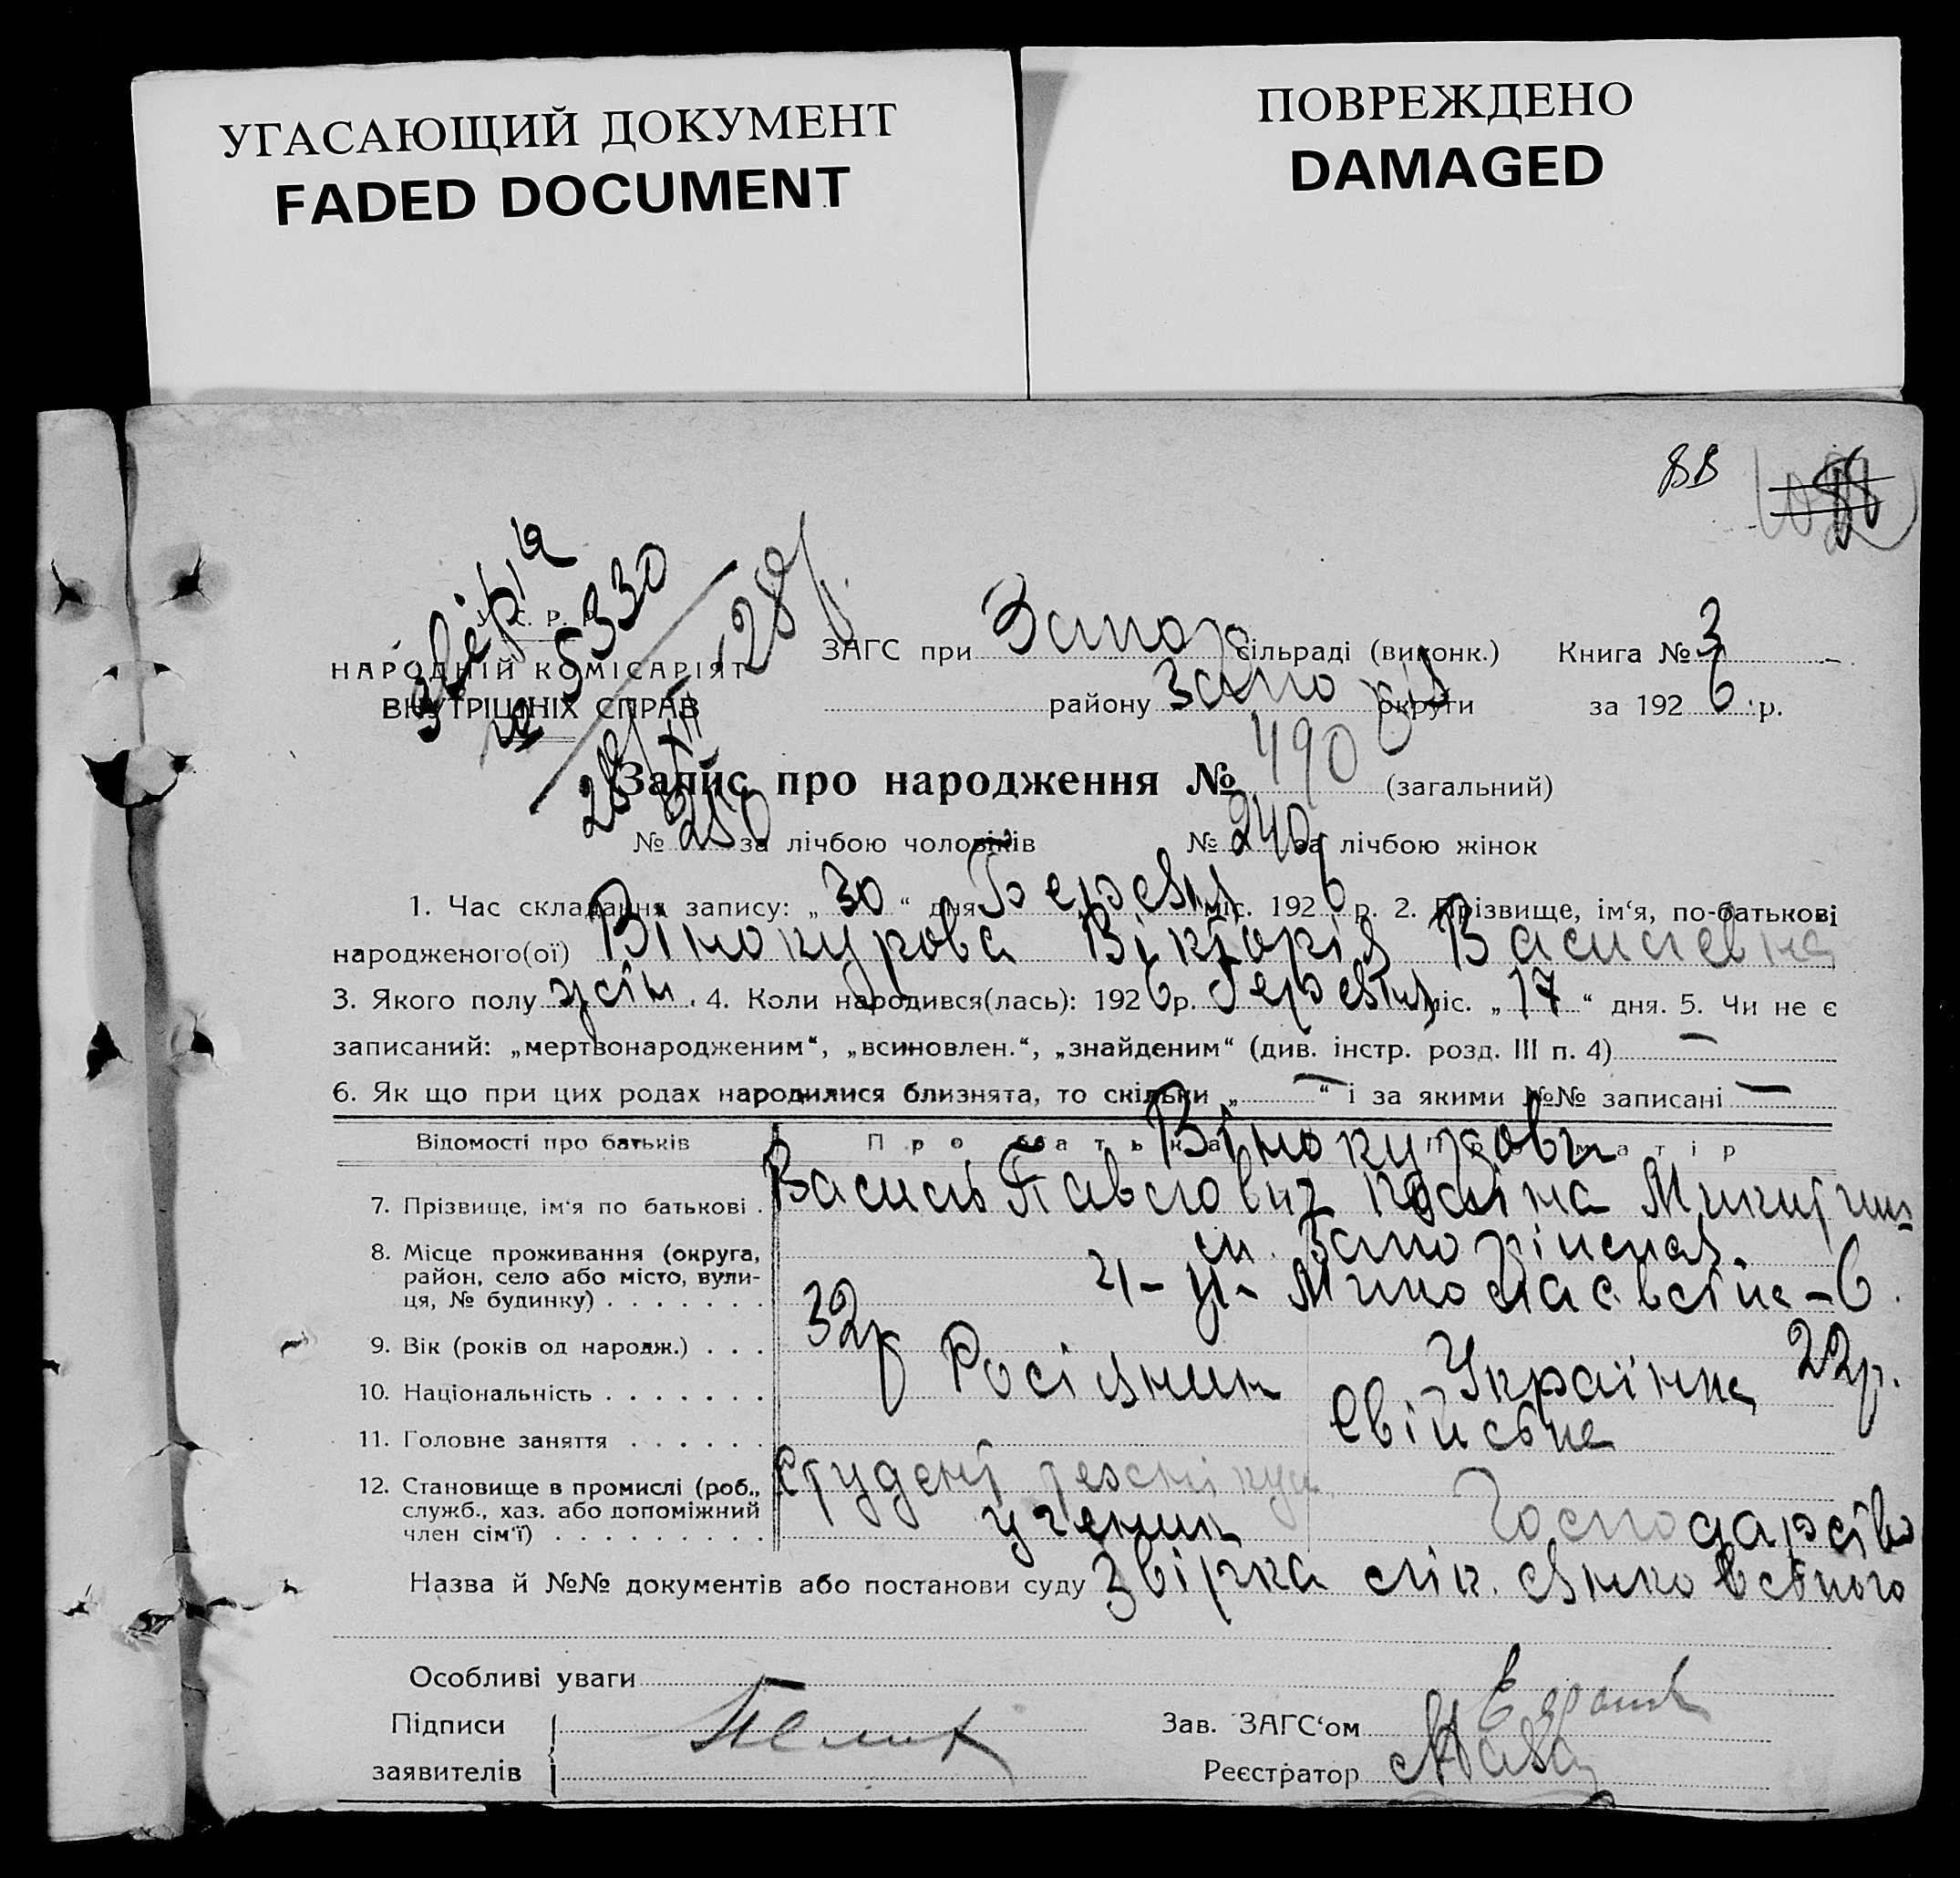 УГАСАЮЩИЙ ДОКУМЕНТ
FADED DOCUMENT
ПОВРЕЖДЕНО
DAMAGED
88
звірка
№ 5330
28/XII 28р.
У. С. Р. Р.
НАРОДНІЙ КОМІСАРІЯТ
ВНУТРІШНІХ СПРАВ
ЗАГС при Запор сільраді (виконк.) Книга № 3
району Запоріз округи за 1926 р.
Запис про народження № 490 (загальний)
№ 250 за лічбою чоловіків № 240 за лічбою жінок
1. Час складання запису: „30“ дня Березня міс. 1926 р. 2. Прізвище, ім‘я, по-батькові
народженого(ої) Вінокурова Вікторія Василевна
3. Якого полу жін. 4. Коли народився(лась): 1926 р. Березня міс. „17“ дня. 5. Чи не є
записаний: „мертвонародженим“, „всиновлен.“, „знайденим“ (див. інстр. розд. III п. 4) —
6. Як що при цих родах народилися близнята, то скільки „—“ і за якими №№ записані —
Відомості про батьків Про батька Про матір
Вінокурови
7. Прізвище, ім‘я по батькові . Василь Павлович
8. Місце проживання (округа,
район, село або місто, вули-
ця, № будинку) . . . . . . .
9. Вік (років од народж.) . . . 32р 22р.
10. Національність . . . . . . . Росіянин Українка
11. Головне заняття . . . . . . Свійське
12. Становище в промислі (роб.,
служб., хаз. або допоміжний
член сім‘ї) . . . . . . . . .
Студент технікум
ученик Господарство
Назва й №№ документів або постанови суду
Особливі уваги
Підписи
заявителів
Зав. ЗАГС‘ом
Реєстратор